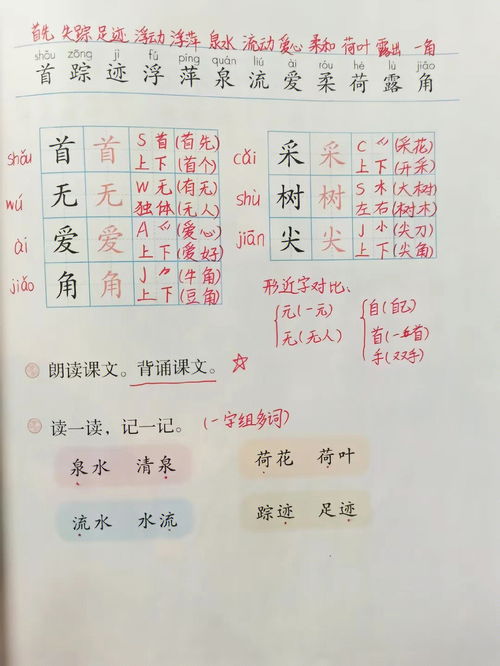 首先 失踪 足迹 浮动 浮萍 泉水 流动 爱心 柔和 荷叶 露出 一角
shǒu zōng jì fú píng quán liú ài róu hé lù jiǎo
首 踪 迹 浮 萍 泉 流 爱 柔 荷 露 角
shǒu 首 首 S 首 (首先)
上下 (首个)
wú 无 无 W 无 (有无)
独体 (无人)
ài 爱 爱 A 爫 (爱心)
上下 (爱好)
jiǎo 角 角 J ⺈ (牛角)
上下 (豆角)
cǎi 采 采 C 爫 (采花)
上下 (开采)
shù 树 树 S 木 (大树)
左右 (树木)
jiān 尖 尖 J 小 (尖刀)
上下 (尖角)
形近字对比:
元(一元)
无(无人)
自(自己)
首(一首)
手(双手)
朗读课文。背诵课文。☆
读一读，记一记。(一字组多词)
泉水 清泉
荷花 荷叶
流水 水流
踪迹 足迹